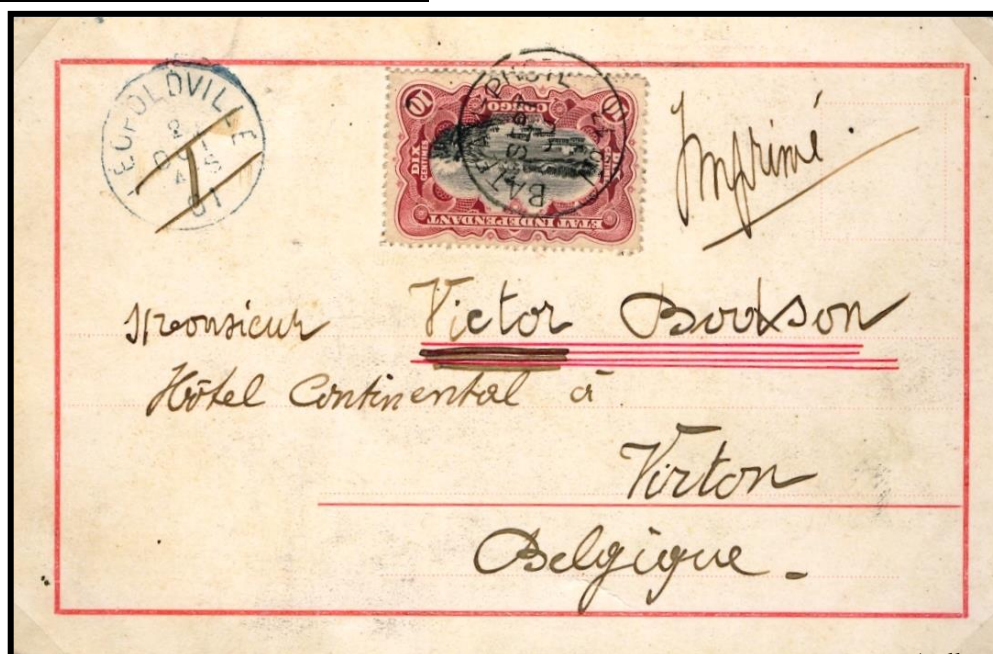 LEOPOLDVILLE
2
OCT
4-S
01
10 CONGO 10
DIX CENTIMES
ETAT INDEPENDANT
Imprimé.
Monsieur Victor Bodson
Hôtel Continental à
Virton
Belgique.